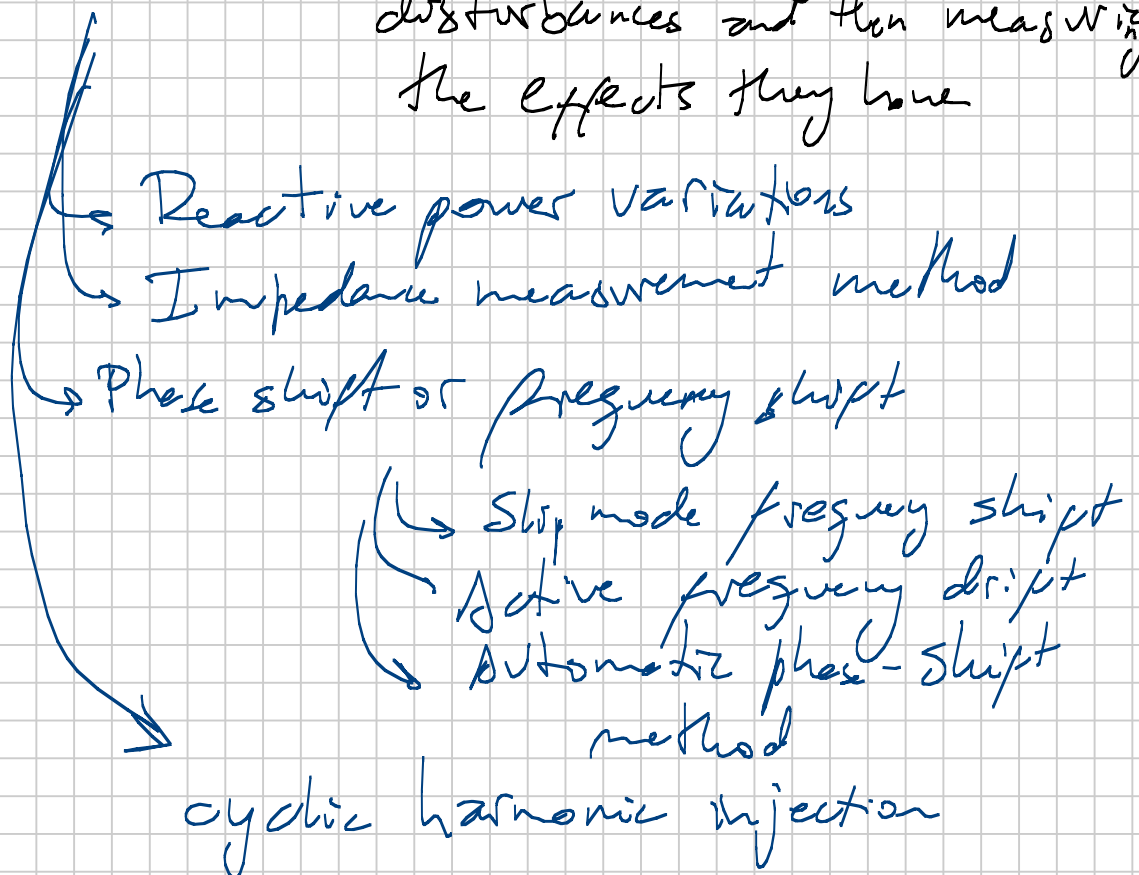 disturbances and then measuring
the effects they have
Reactive power variations
Impedance measurement method
Phase shift or frequency shift
Slip mode frequency shift
Active frequency drift
Automatic phase-shift
method
cyclic harmonic injection